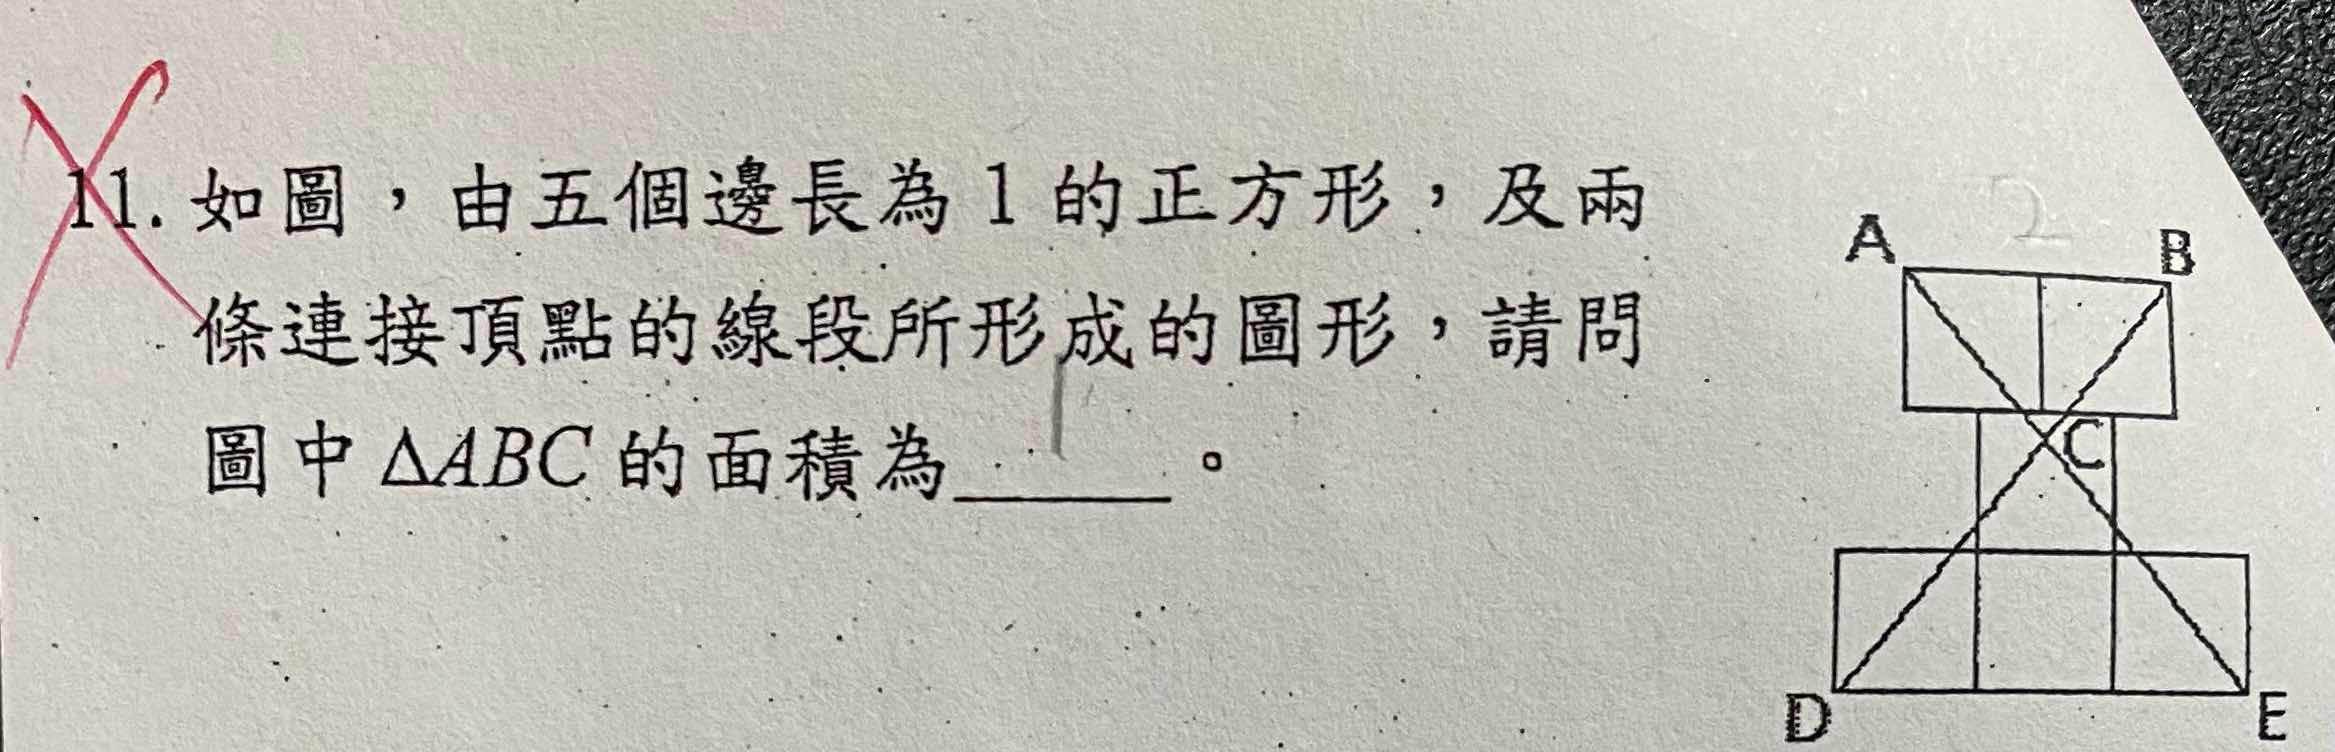 11. 如圖，由五個邊長為 1 的正方形，及兩
條連接頂點的線段所形成的圖形，請問
圖中 ΔABC 的面積為______。
1
2
A
B
C
D
E